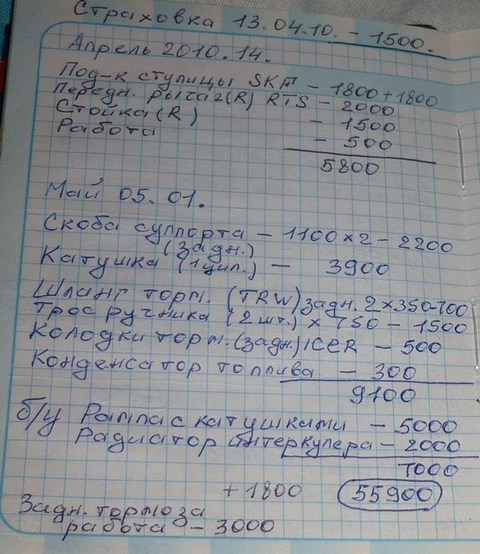 Страховка 13.04.10. - 1500.
Апрель 2010.14.
Под-к ступицы SKF - 1800+1800
Передн. рычаг(R) RTS - 2000
Стойка(R) - 1500
Работа - 500
5800
Май 05.01.
Скоба суппорта - 1100x2 - 2200
(задн.)
Катушка (1цил.) - 3900
Шланг торм. (TRW) задн. 2x350-700
Трос ручника (2шт.) x 750 - 1500
Колодки торм.(задн.) ICER - 500
Конденсатор топлива - 300
9100
б/у Рампа с катушками - 5000
Радиатор интеркулера - 2000
7000
+1800 55900
Задн. тормоза
работа - 3000